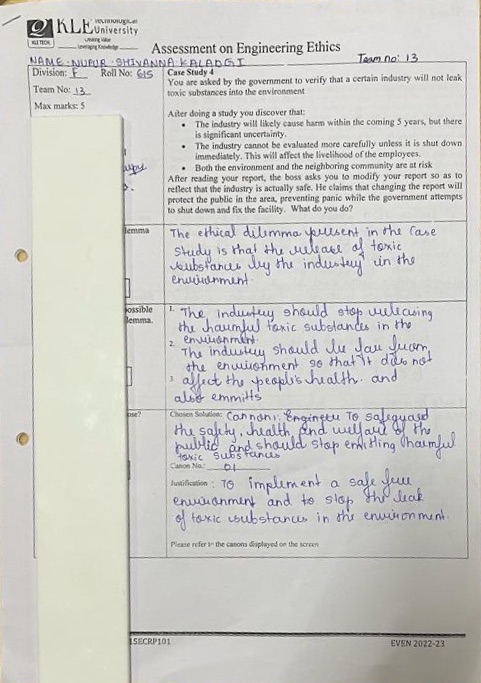 KLE Technological University
Creating Value
Leveraging Knowledge
KLE TECH.
Assessment on Engineering Ethics
NAME: NUPUR SHIVANNA KALADGI Team no: 13
Division: F Roll No: 615
Team No: 13
Max marks: 5
Case Study 4
You are asked by the government to verify that a certain industry will not leak
toxic substances into the environment
After doing a study you discover that:
• The industry will likely cause harm within the coming 5 years, but there
is significant uncertainty.
• The industry cannot be evaluated more carefully unless it is shut down
immediately. This will affect the livelihood of the employees.
• Both the environment and the neighboring community are at risk
After reading your report, the boss asks you to modify your report so as to
reflect that the industry is actually safe. He claims that changing the report will
protect the public in the area, preventing panic while the government attempts
to shut down and fix the facility. What do you do?
lemma
The ethical dilemma present in the case
study is that the release of toxic
substances by the industry in the
environment.
ossible
lemma.
1. The industry should stop releasing
the harmful toxic substances in the
environment.
2. The industry should be far from
the environment so that it does not
3. affect the people's health. and
also emmitts
ose?
Chosen Solution: Cannon1: Engineer To safeguard
the safety, health and welfare of the
public and should stop emitting harmful
toxic substances
Canon No.: 01
Justification: To implement a safe free
environment and to stop the leak
of toxic substances in the environment.
Please refer to the canons displayed on the screen
15ECRP101 EVEN 2022-23